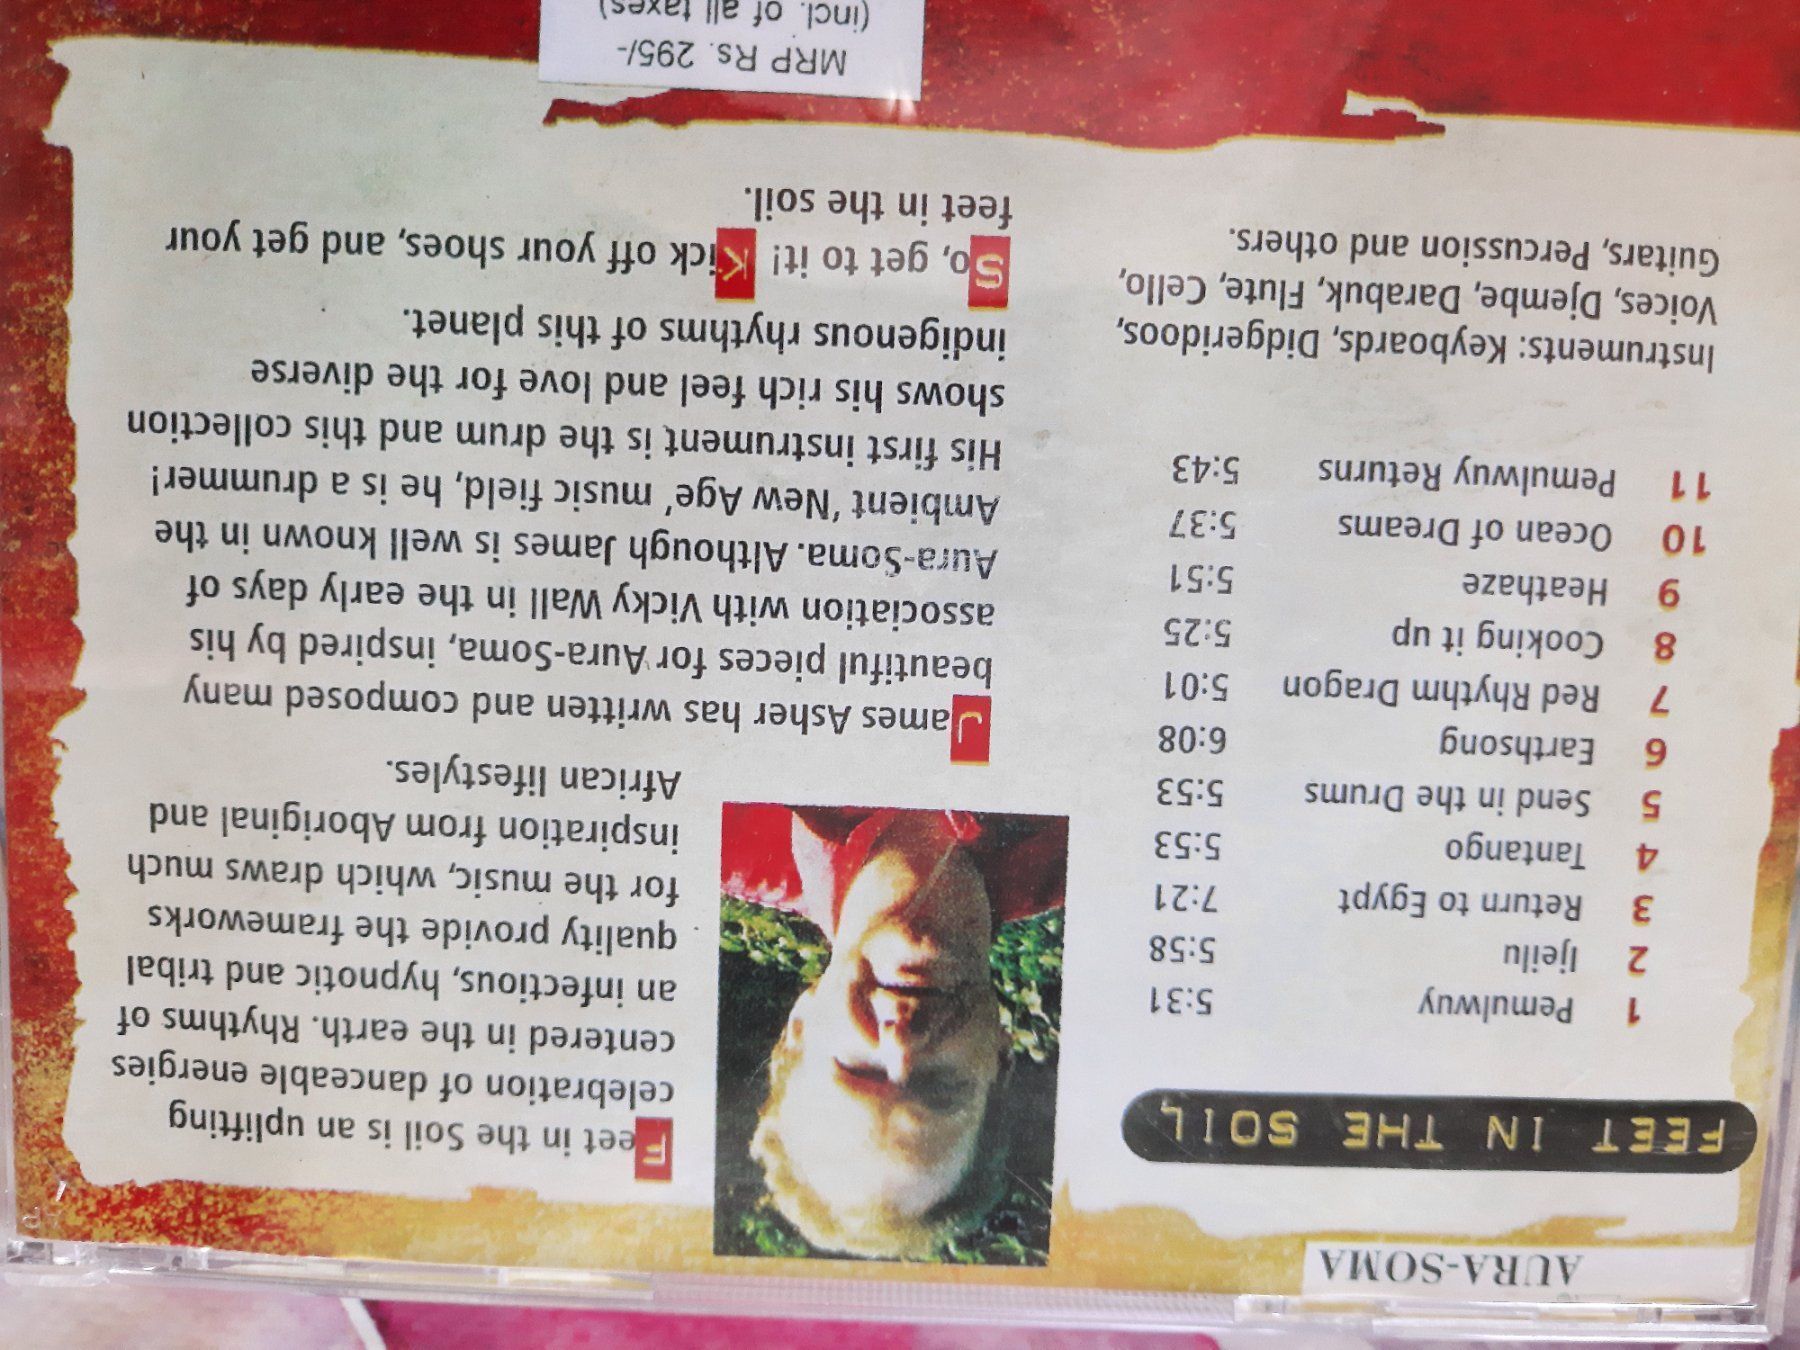 AURA-SOMA
FEET IN THE SOIL
1 Pemulwuy 5:31
2 Ijeilu 5:58
3 Return to Egypt 7:21
4 Tantango 5:53
5 Send in the Drums 5:53
6 Earthsong 6:08
7 Red Rhythm Dragon 5:01
8 Cooking it up 5:25
9 Heathaze 5:51
10 Ocean of Dreams 5:37
11 Pemulwuy Returns 5:43
Instruments: Keyboards, Didgeridoos,
Voices, Djembe, Darabuk, Flute, Cello,
Guitars, Percussion and others.
Feet in the Soil is an uplifting
celebration of danceable energies
centered in the earth. Rhythms of
an infectious, hypnotic and tribal
quality provide the frameworks
for the music, which draws much
inspiration from Aboriginal and
African lifestyles.
James Asher has written and composed many
beautiful pieces for Aura-Soma, inspired by his
association with Vicky Wall in the early days of
Aura-Soma. Although James is well known in the
Ambient ‘New Age’ music field, he is a drummer!
His first instrument is the drum and this collection
shows his rich feel and love for the diverse
indigenous rhythms of this planet.
So, get to it! Kick off your shoes, and get your
feet in the soil.
MRP Rs. 295/-
(incl. of all taxes)